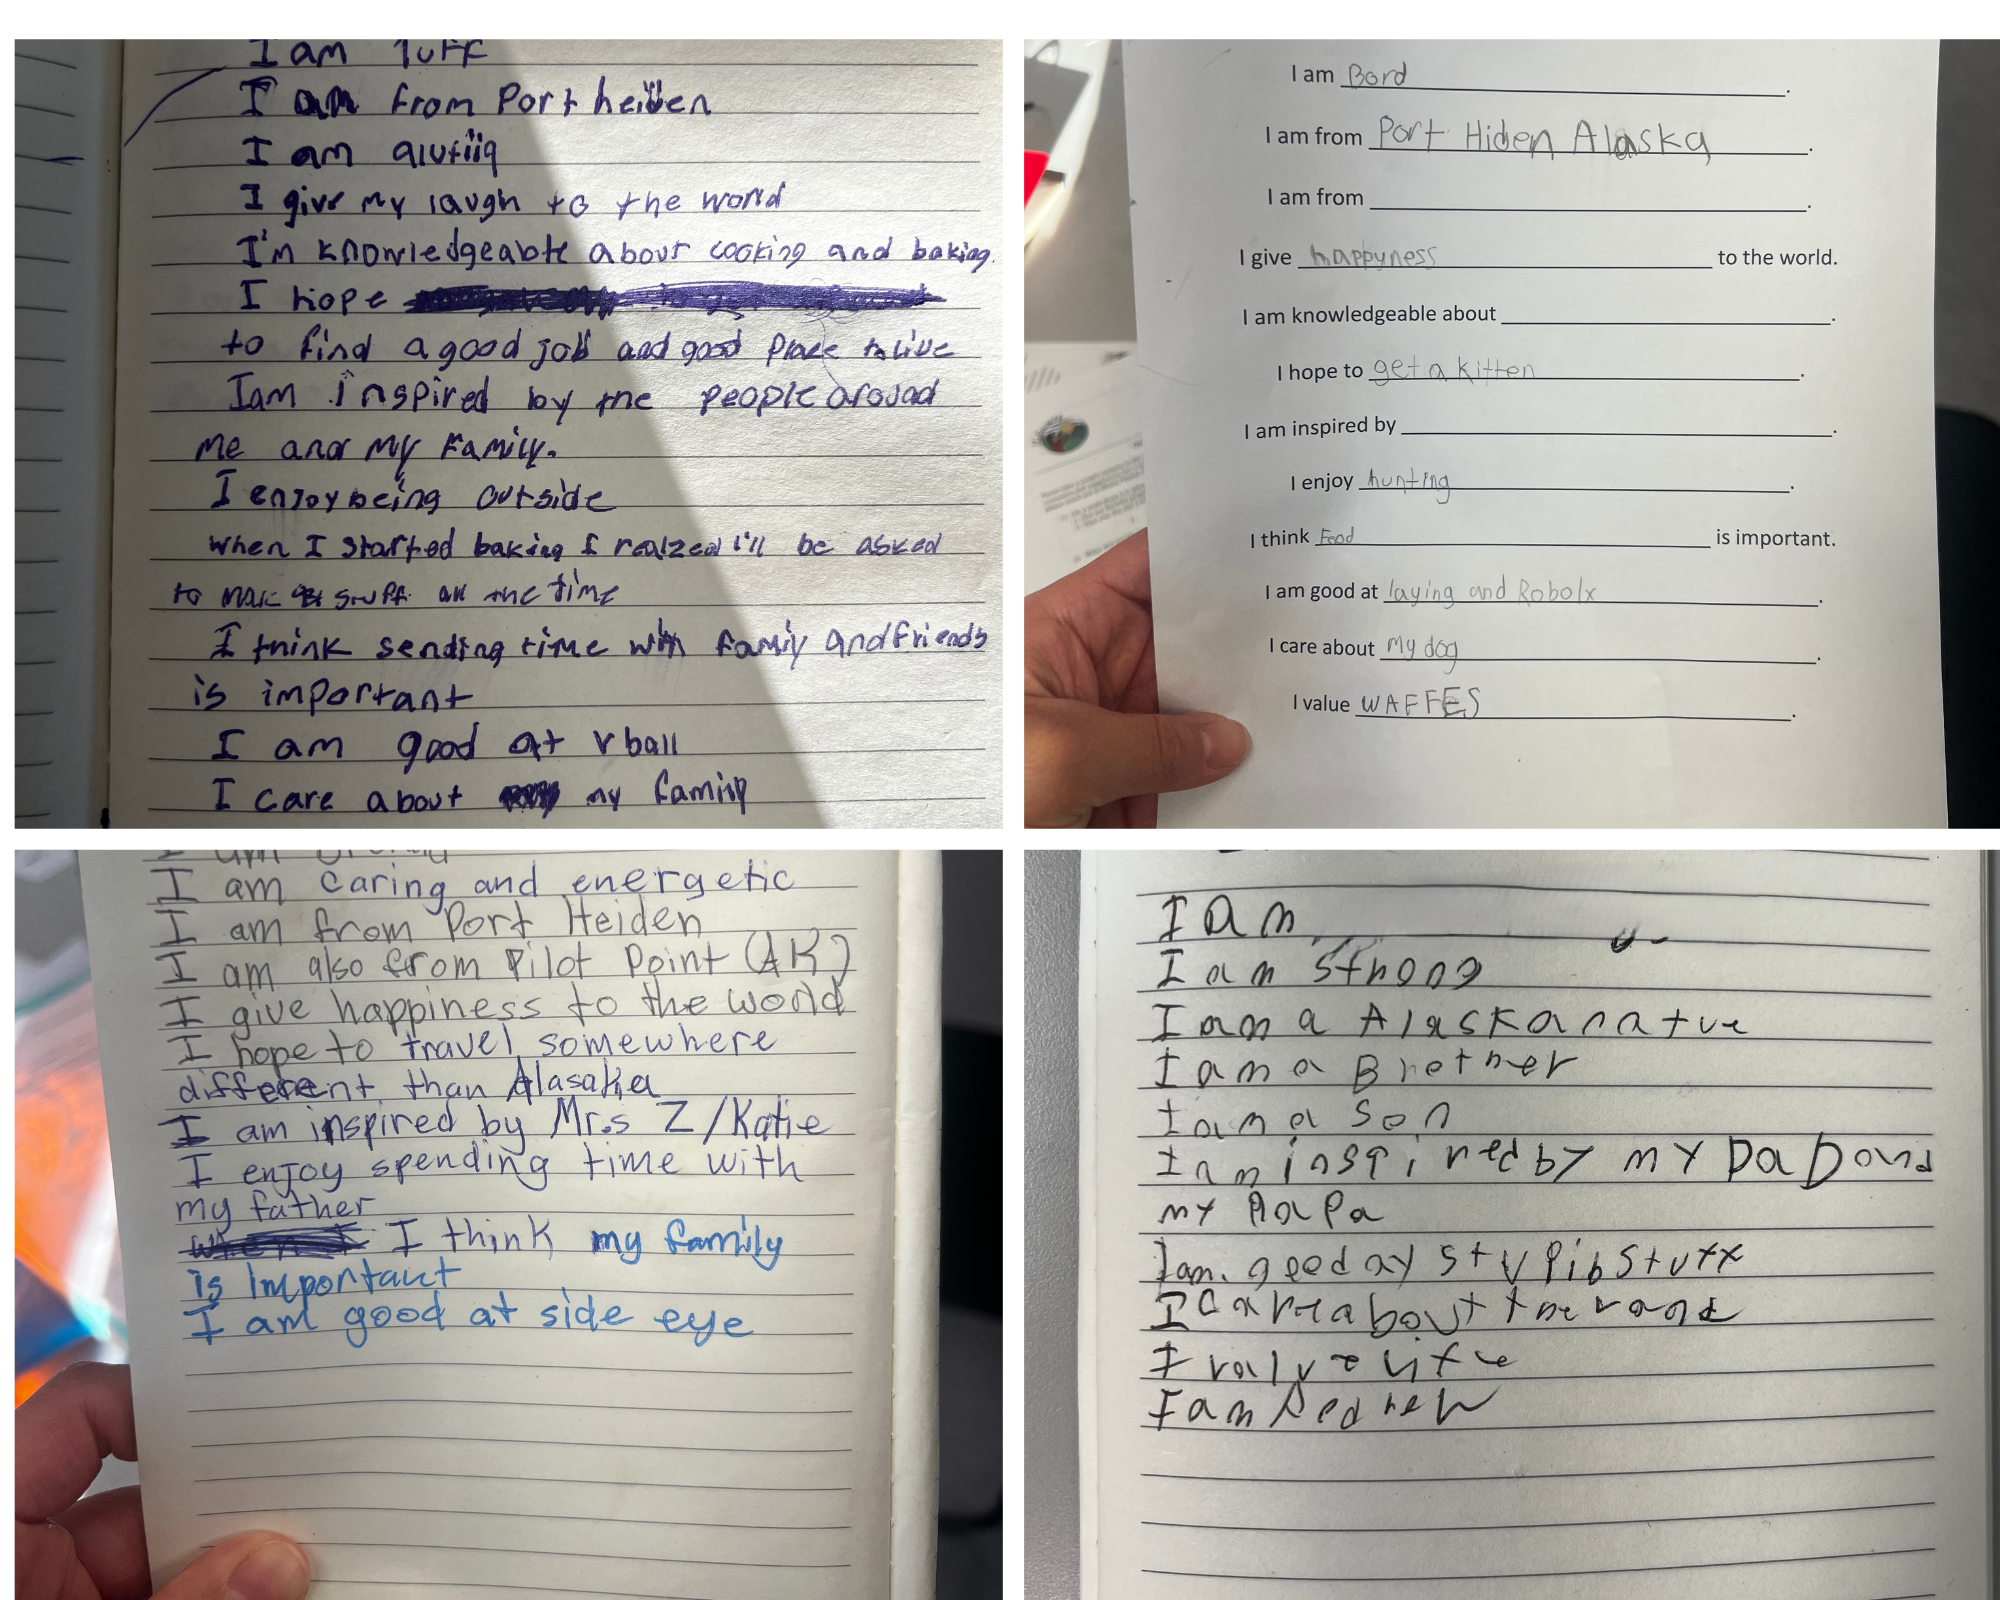 I am Tuff
I am from Port heiden
I am alutiiq
I give my laugh to the world
I'm knowledgeable about cooking and baking.
I hope
to find a good job and good place to live
I am inspired by the people around
me and my family.
I enjoy being outside
when I started baking I realzed I'll be asked
to make stuff all the time
I think sending time with family and friends
is important
I am good at vball
I care about my family
I am Bord.
I am from Port Hiden Alaska.
I am from.
I give happyness to the world.
I am knowledgeable about.
I hope to get a kitten.
I am inspired by.
I enjoy hunting.
I think Food is important.
I am good at laying and Robolx.
I care about my dog.
I value WAFFES.
I am caring and energetic
I am from Port Heiden
I am also from Pilot Point (AK)
I give happiness to the world
I hope to travel somewhere
different than Alasaka
I am inspired by Mr.s Z/Katie
I enjoy spending time with
my father
I think my family
is important
I am good at side eye
I am
I am strong
I am a Alaska natve
I am a Brother
I am a Son
I am inspired by my Da D and
my PaPa
I am good ay stupib stuff
I care about
I value life
I am